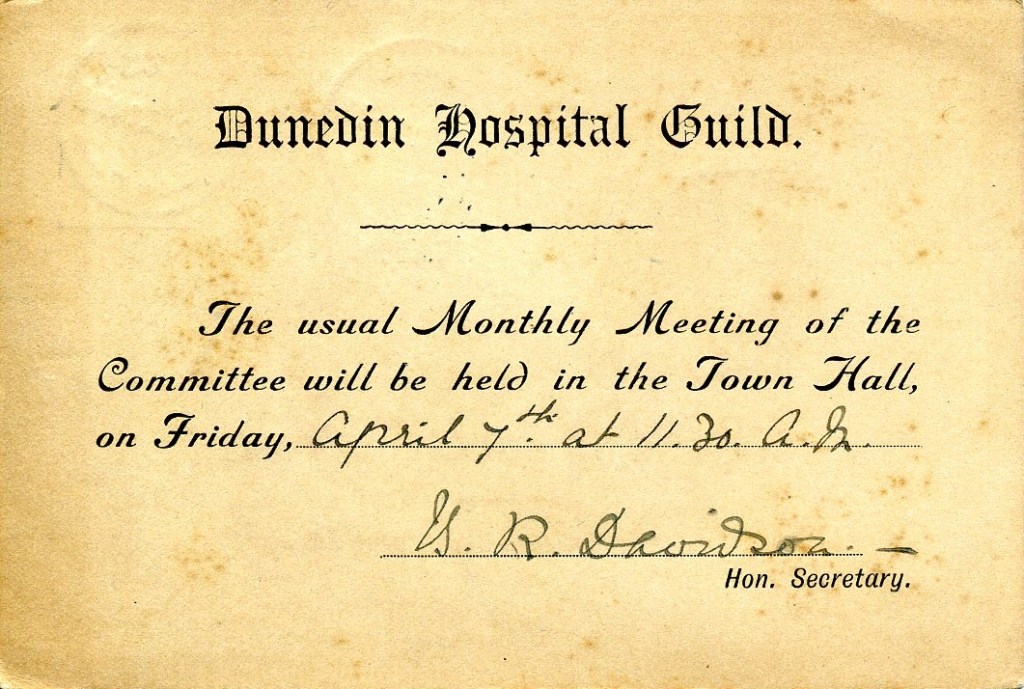 Dunedin Hospital Guild.
The usual Monthly Meeting of the
Committee will be held in the Town Hall,
on Friday, April 7th. at 11.30. A.M.
R. Davidson.
Hon. Secretary.